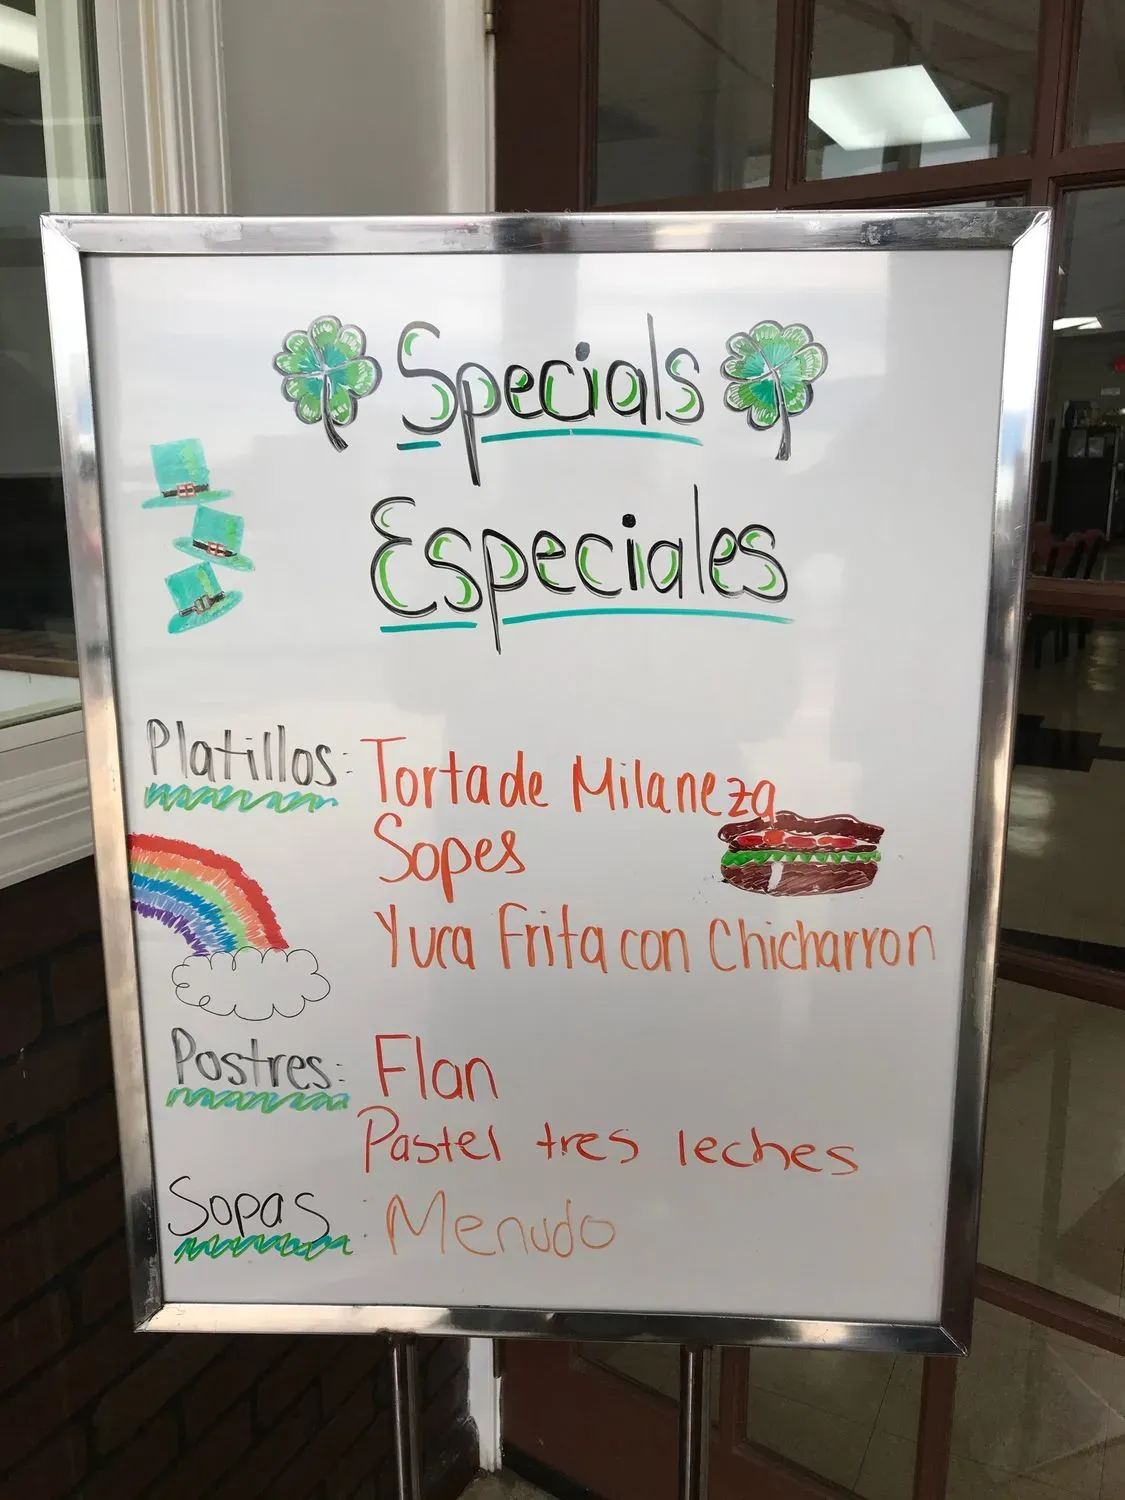 Specials
Especiales
Platillos: Torta de Milaneza
Sopes
Yuca Frita con Chicharron
Postres: Flan
Pastel tres leches
Sopas: Menudo